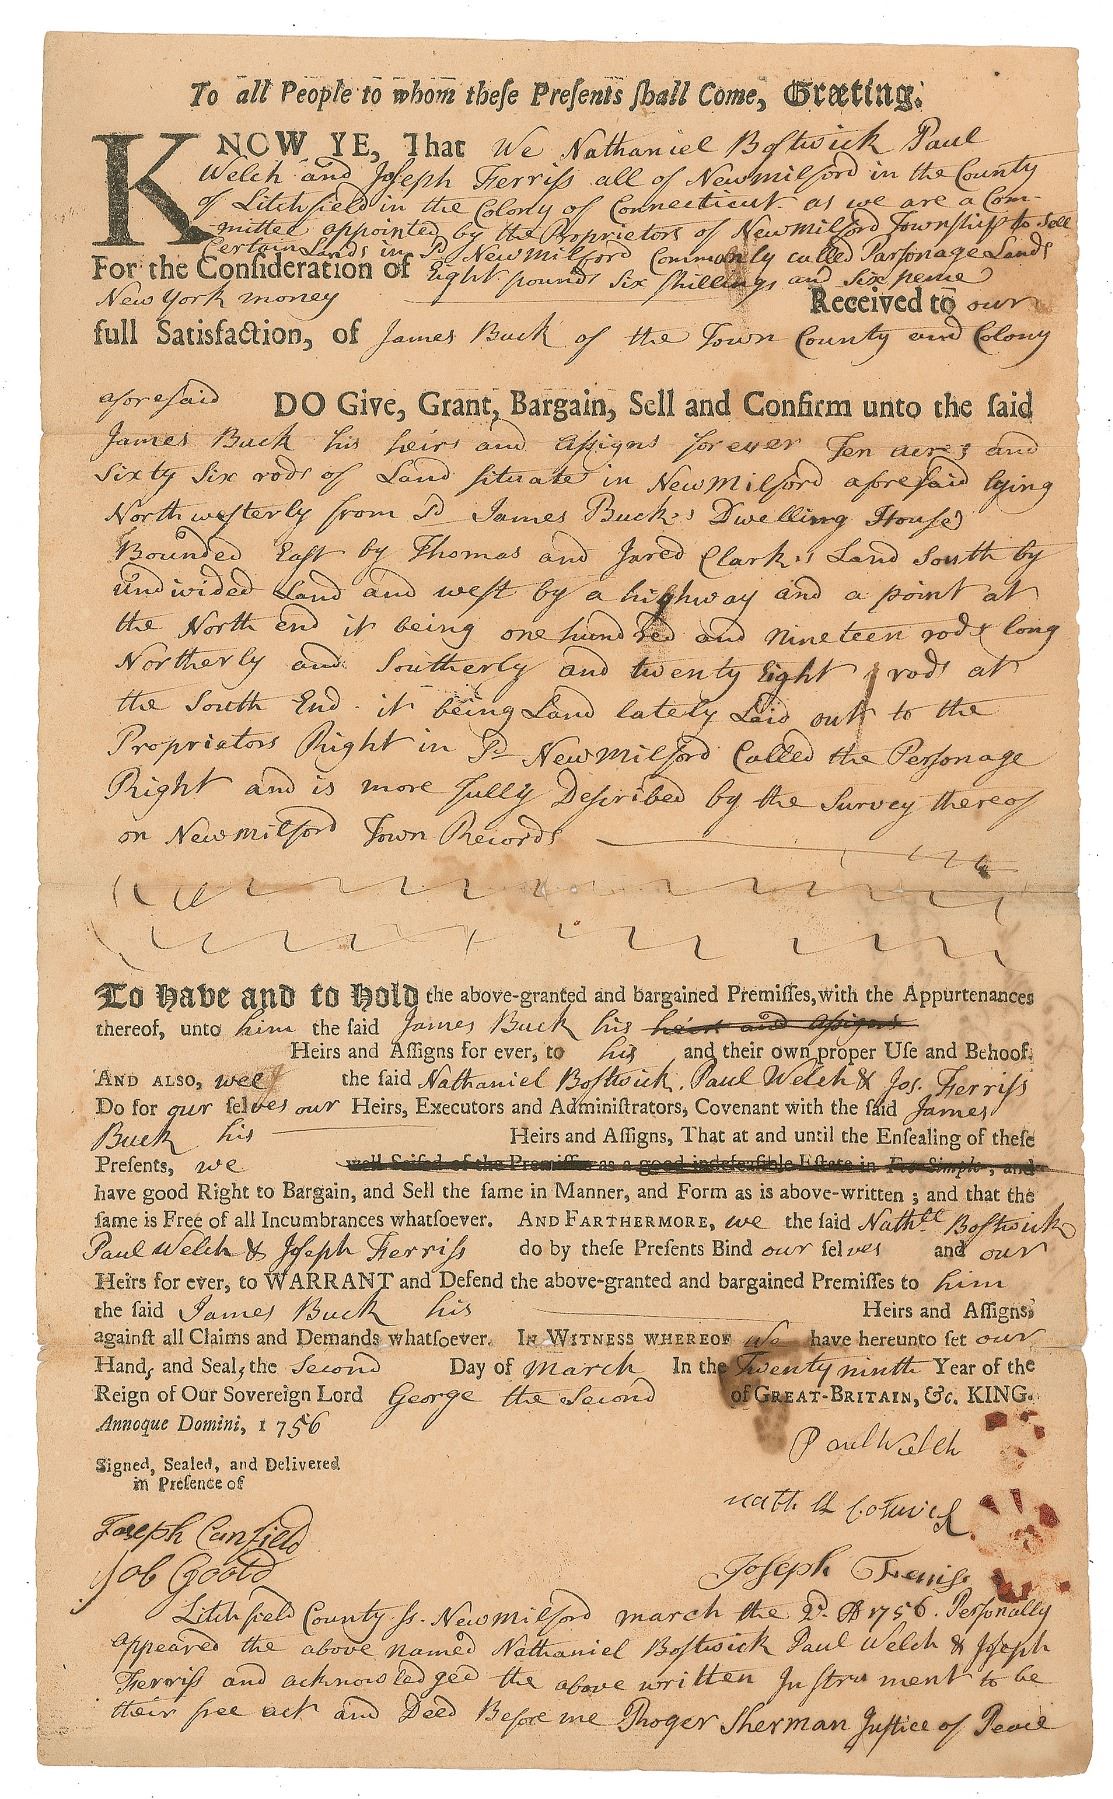 To all People to whom these Presents shall Come, Græting.
KNOW YE, That We Nathaniel Bostwick Paul
Welch and Joseph Ferriss all of Newmilford in the County
of Litchfield in the Colony of Connecticut as we are a Com-
-mittee appointed by the Proprietors of Newmilford Township to sell
Certain Lands in Sd Newmilford Commonly called Parsonage Lands
For the Consideration of Eight pounds six shillings and six pence
New York money Received to our
full Satisfaction, of James Buck of the Town County and Colony
aforesaid DO Give, Grant, Bargain, Sell and Confirm unto the said
James Buck his heirs and Assigns forever Ten acres and
Sixty Six rods of Land situate in Newmilford aforesaid lying
Northwesterly from Sd James Buck's Dwelling House
Bounded East by Thomas and Jared Clark's Land South by
undivided Land and west by a highway and a point at
the North end it being one hundred and nineteen rods long
Northerly and Southerly and twenty Eight rods at
the South End. it being Land lately Laid out to the
Propriators Right in Sd Newmilford Called the Personage
Right and is more fully Described by the Survey thereof
on Newmilford Town Records
To have and to hold the above-granted and bargained Premisses, with the Appurtenances
thereof, unto him the said James Buck his heirs and Assigns
Heirs and Assigns for ever, to his and their own proper Use and Behoof.
AND ALSO, wee the said Nathaniel Bostwick, Paul Welch & Jos. Ferriss
Do for our selves our Heirs, Executors and Administrators, Covenant with the said James
Buck his Heirs and Assigns, That at and until the Ensealing of these
Presents, we well Seised of the Premisses as a good indefeasible Estate in Fee-Simple; and
have good Right to Bargain, and Sell the same in Manner, and Form as is above-written; and that the
same is Free of all Incumbrances whatsoever. AND FARTHERMORE, we the said Nathll Bostwick
Paul Welch & Joseph Ferriss do by these Presents Bind our selves and our
Heirs for ever, to WARRANT and Defend the above-granted and bargained Premisses to him
the said James Buck his Heirs and Assigns,
against all Claims and Demands whatsoever. IN WITNESS WHEREOF We have hereunto set our
Hands and Seals the Second Day of March In the Twenty ninth Year of the
Reign of Our Sovereign Lord George the Second of GREAT-BRITAIN, &c. KING.
Annoque Domini, 1756
Paul Welch
Signed, Sealed, and Delivered
in Presence of
Nathll Bostwick
Joseph Canfield
Job Goold
Joseph Ferriss
Litchfield County Ss. Newmilford march the 2d. AD 1756. Personally
appeared the above named Nathaniel Bostwick Paul Welch & Joseph
Ferriss and acknowledged the above written Instrument to be
their free act and Deed Before me Roger Sherman Justice of Peace